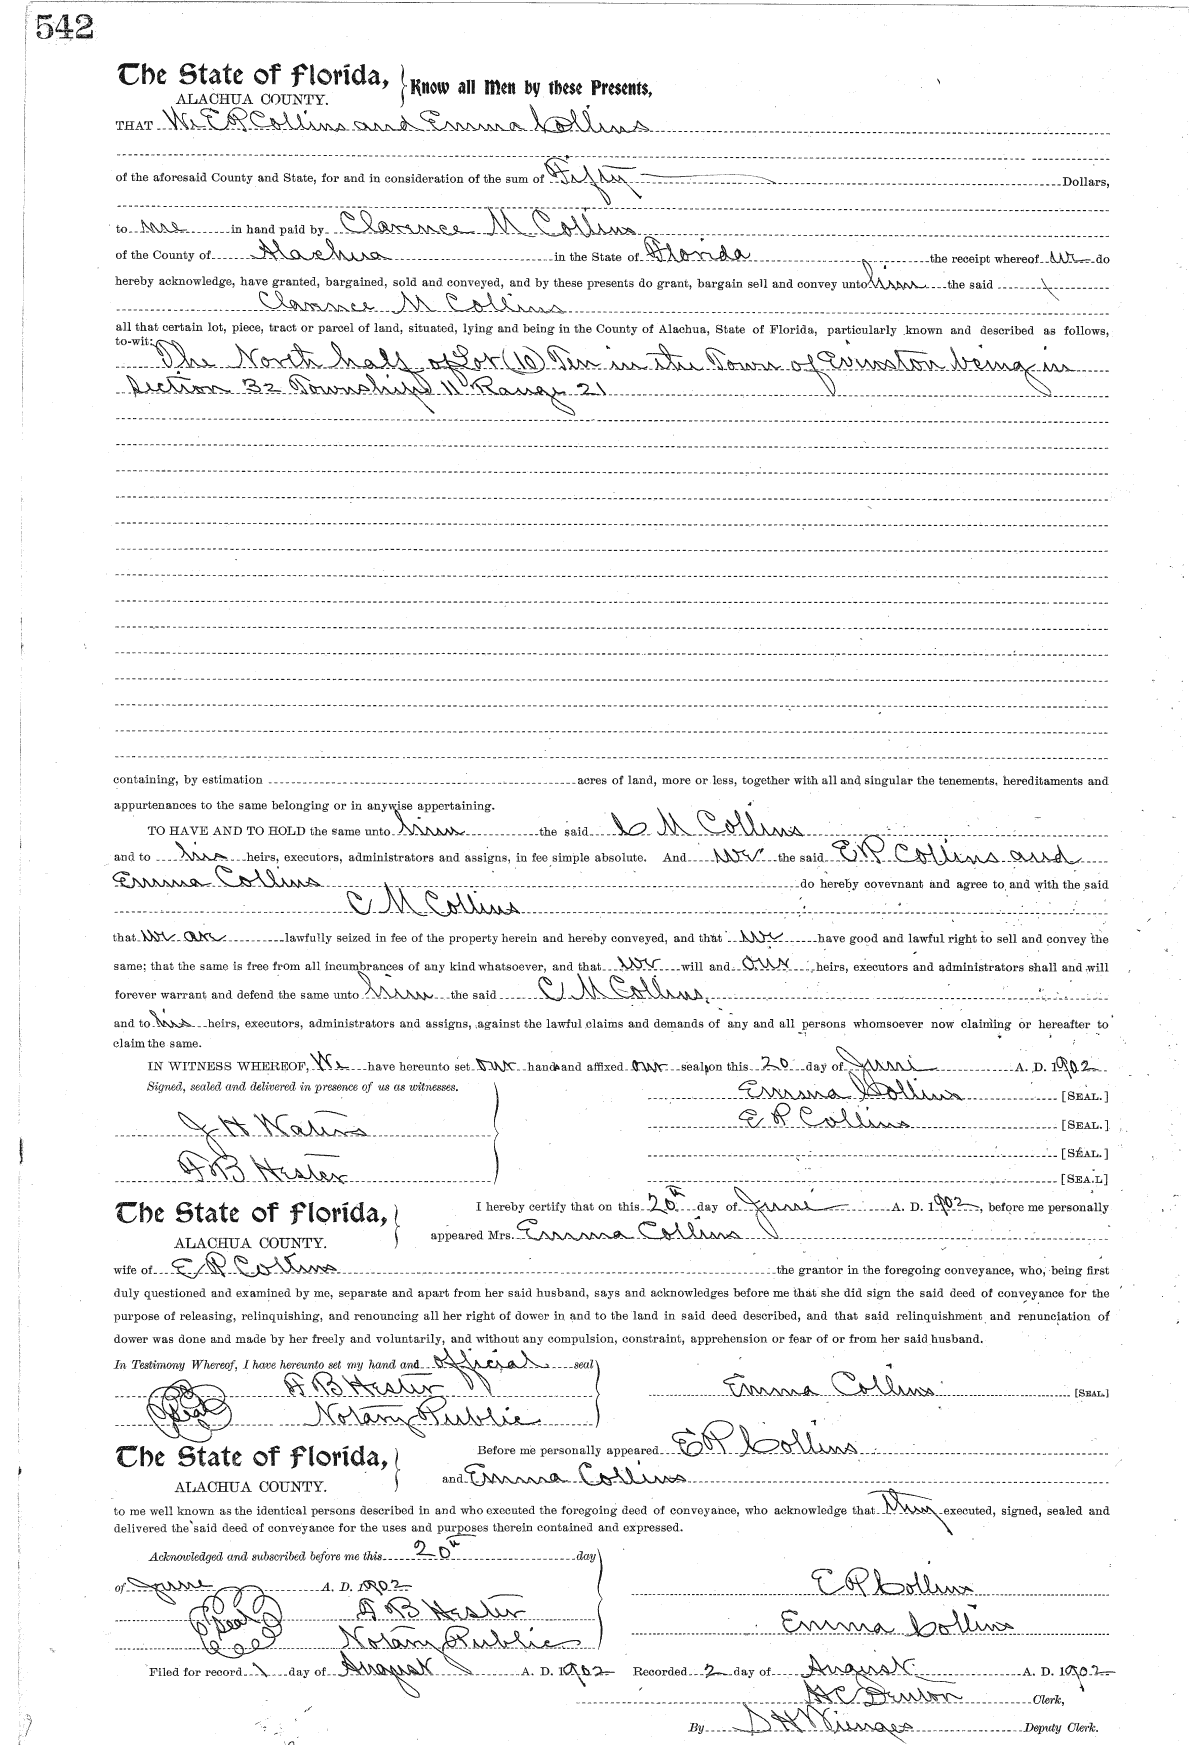 542
The State of Florida, Know all Men by these Presents,
ALACHUA COUNTY.
THAT We E P Collins and Emma Collins
of the aforesaid County and State, for and in consideration of the sum of Fifty Dollars,
to me in hand paid by Clarence M Collins
of the County of Alachua in the State of Florida the receipt whereof we do
hereby acknowledge, have granted, bargained, sold and conveyed, and by these presents do grant, bargain sell and convey unto him the said
Clarence M Collins
all that certain lot, piece, tract or parcel of land, situated, lying and being in the County of Alachua, State of Florida, particularly known and described as follows,
to-wit:
The North half of Lot (10) Ten in the Town of Evinston being in
Section 32 Township 11 Range 21
containing, by estimation acres of land, more or less, together with all and singular the tenements, hereditaments and
appurtenances to the same belonging or in anywise appertaining.
TO HAVE AND TO HOLD the same unto him the said C M Collins
and to his heirs, executors, administrators and assigns, in fee simple absolute. And we the said E P Collins and
Emma Collins do hereby covevnant and agree to and with the said
C M Collins
that we are lawfully seized in fee of the property herein and hereby conveyed, and that we have good and lawful right to sell and convey the
same; that the same is free from all incumbrances of any kind whatsoever, and that we will and our heirs, executors and administrators shall and will
forever warrant and defend the same unto him the said C M Collins,
and to his heirs, executors, administrators and assigns, against the lawful claims and demands of any and all persons whomsoever now claiming or hereafter to
claim the same.
IN WITNESS WHEREOF, We have hereunto set our hands and affixed our seals on this 20 day of June A. D. 1902
Signed, sealed and delivered in presence of us as witnesses. Emma Collins [SEAL.]
J H Waters E P Collins [SEAL.]
[SEAL.]
F B Hester [SEA.L]
The State of Florida, I hereby certify that on this 20th day of June A. D. 1902, before me personally
ALACHUA COUNTY. appeared Mrs. Emma Collins
wife of E P Collins the grantor in the foregoing conveyance, who, being first
duly questioned and examined by me, separate and apart from her said husband, says and acknowledges before me that she did sign the said deed of conveyance for the
purpose of releasing, relinquishing, and renouncing all her right of dower in and to the land in said deed described, and that said relinquishment and renunciation of
dower was done and made by her freely and voluntarily, and without any compulsion, constraint, apprehension or fear of or from her said husband.
In Testimony Whereof, I have hereunto set my hand and official seal
F B Hester Emma Collins [SEAL.]
Seal Notary Public
The State of Florida, Before me personally appeared E P Collins
ALACHUA COUNTY. and Emma Collins
to me well known as the identical persons described in and who executed the foregoing deed of conveyance, who acknowledge that they executed, signed, sealed and
delivered the said deed of conveyance for the uses and purposes therein contained and expressed.
Acknowledged and subscribed before me this 20th day
of June A. D. 1902 E P Collins
Seal F B Hester
Notary Public Emma Collins
Filed for record 1 day of August A. D. 1902 Recorded 2 day of August A. D. 1902
H C Denton Clerk,
By S H Wienges Deputy Clerk.